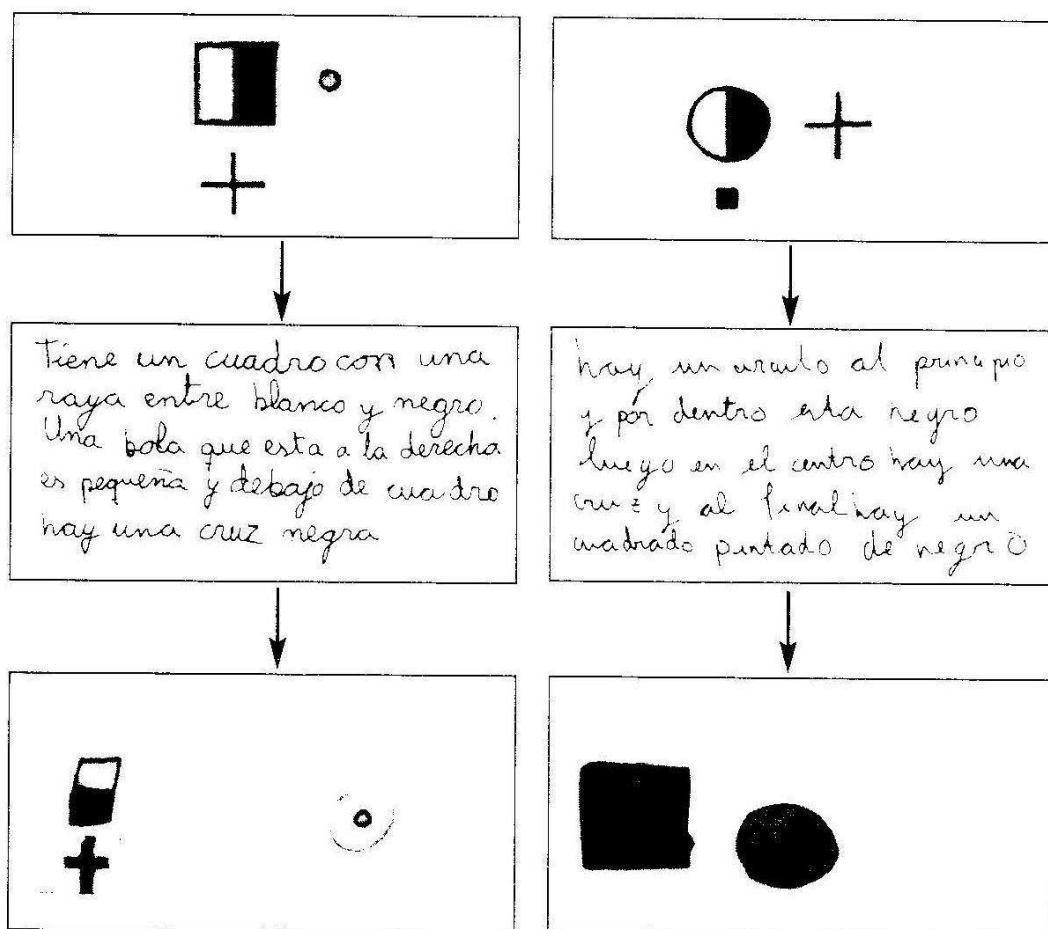 Tiene un cuadro con una
raya entre blanco y negro.
Una bola que esta a la derecha
es pequeña y debajo de cuadro
hay una cruz negra
hay un circulo al principio
y por dentro esta negro
luego en el centro hay una
cruz y al final hay un
cuadrado pintado de negro